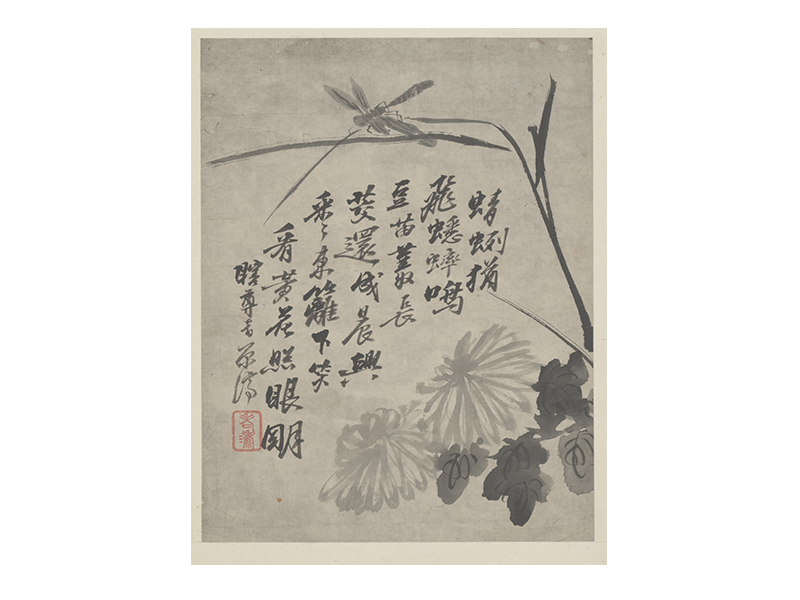 蜻蜊猶
飛蟋蟀鳴
豆苗長
還成晨興
采〻東籬下笑
看黃花照眼明
瞎尊者原濟
老濤